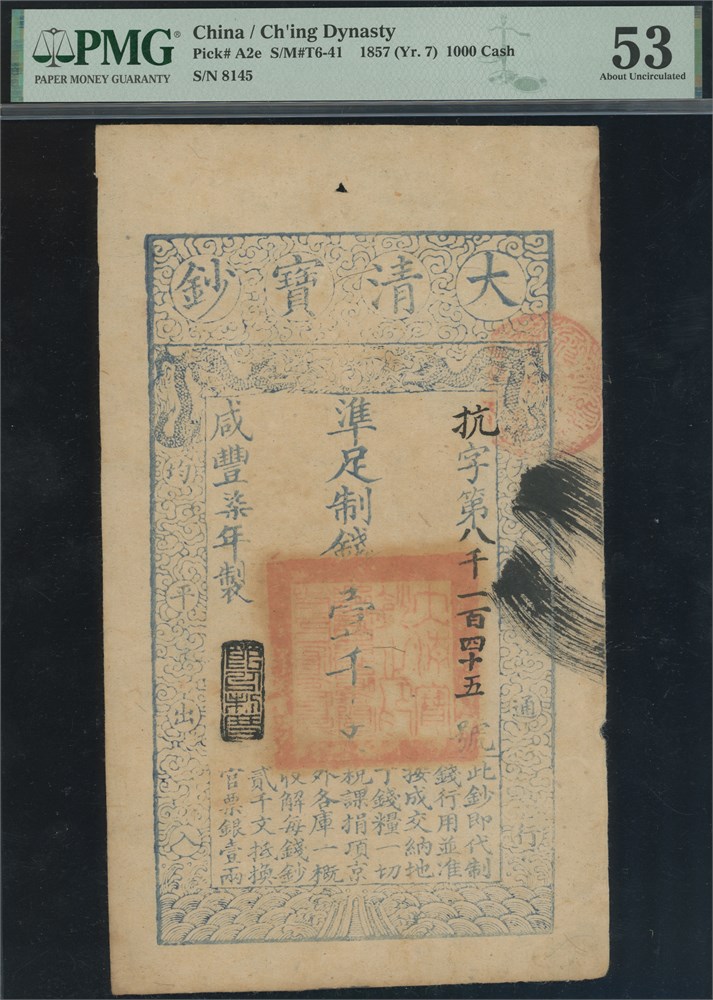 PMG
PAPER MONEY GUARANTY
China / Ch'ing Dynasty
Pick# A2e S/M#T6-41 1857 (Yr. 7) 1000 Cash
S/N 8145
53
About Uncirculated
大清寶鈔
抗字第八千一百四十五號
準足制錢壹千文
咸豐柒年製
此鈔即代制
錢行用並准
按成交納地
丁錢糧一切
稅課捐項京
外各庫一概
收解每錢鈔
貳千文抵換
官票銀壹兩
通行
均平出入